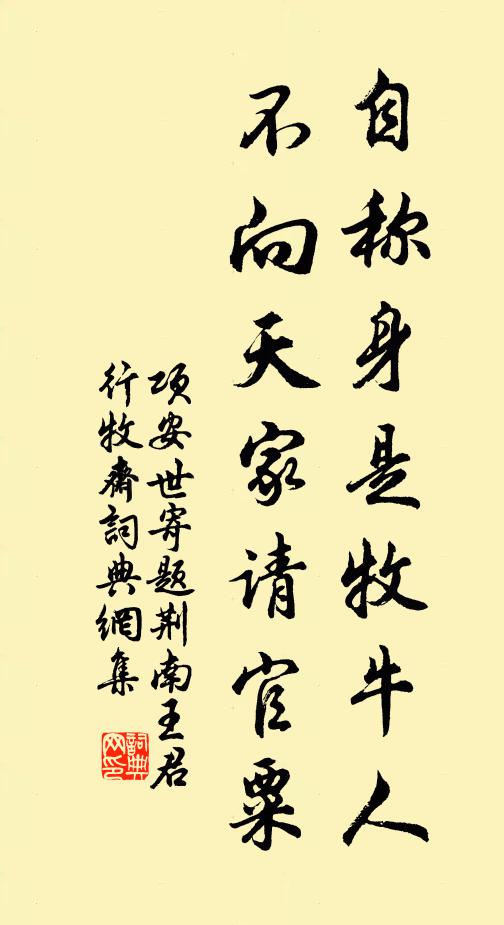 自称身是牧牛人
不向天家请官粟
项安世寄题荆南王君
行牧斋詞典網集
詞典網印